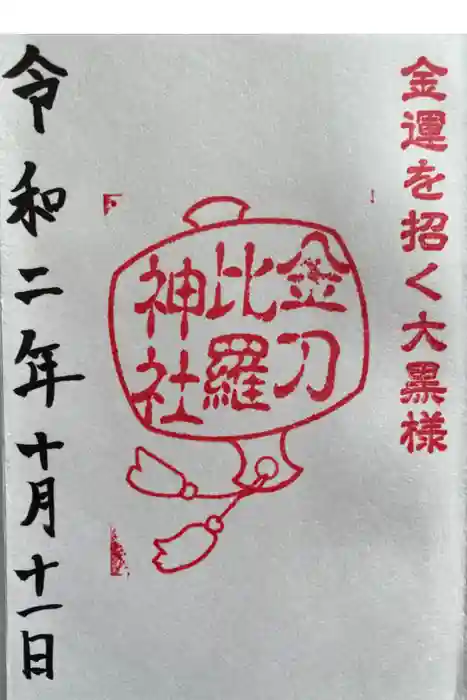 金運を招く大黒様
金刀
比羅
神社
令和二年十月十一日